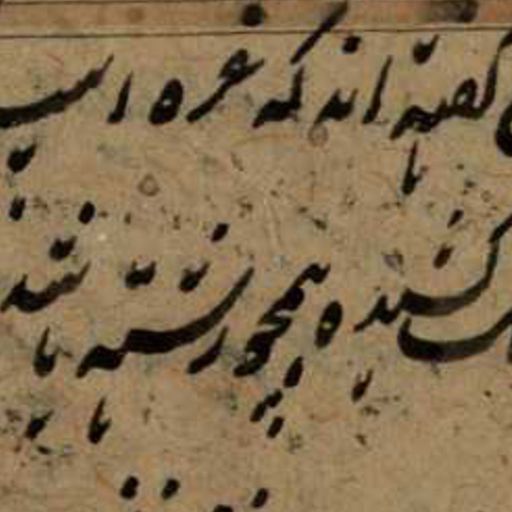 گفته اند که غره اسب
کشیده همچو رشته باشد